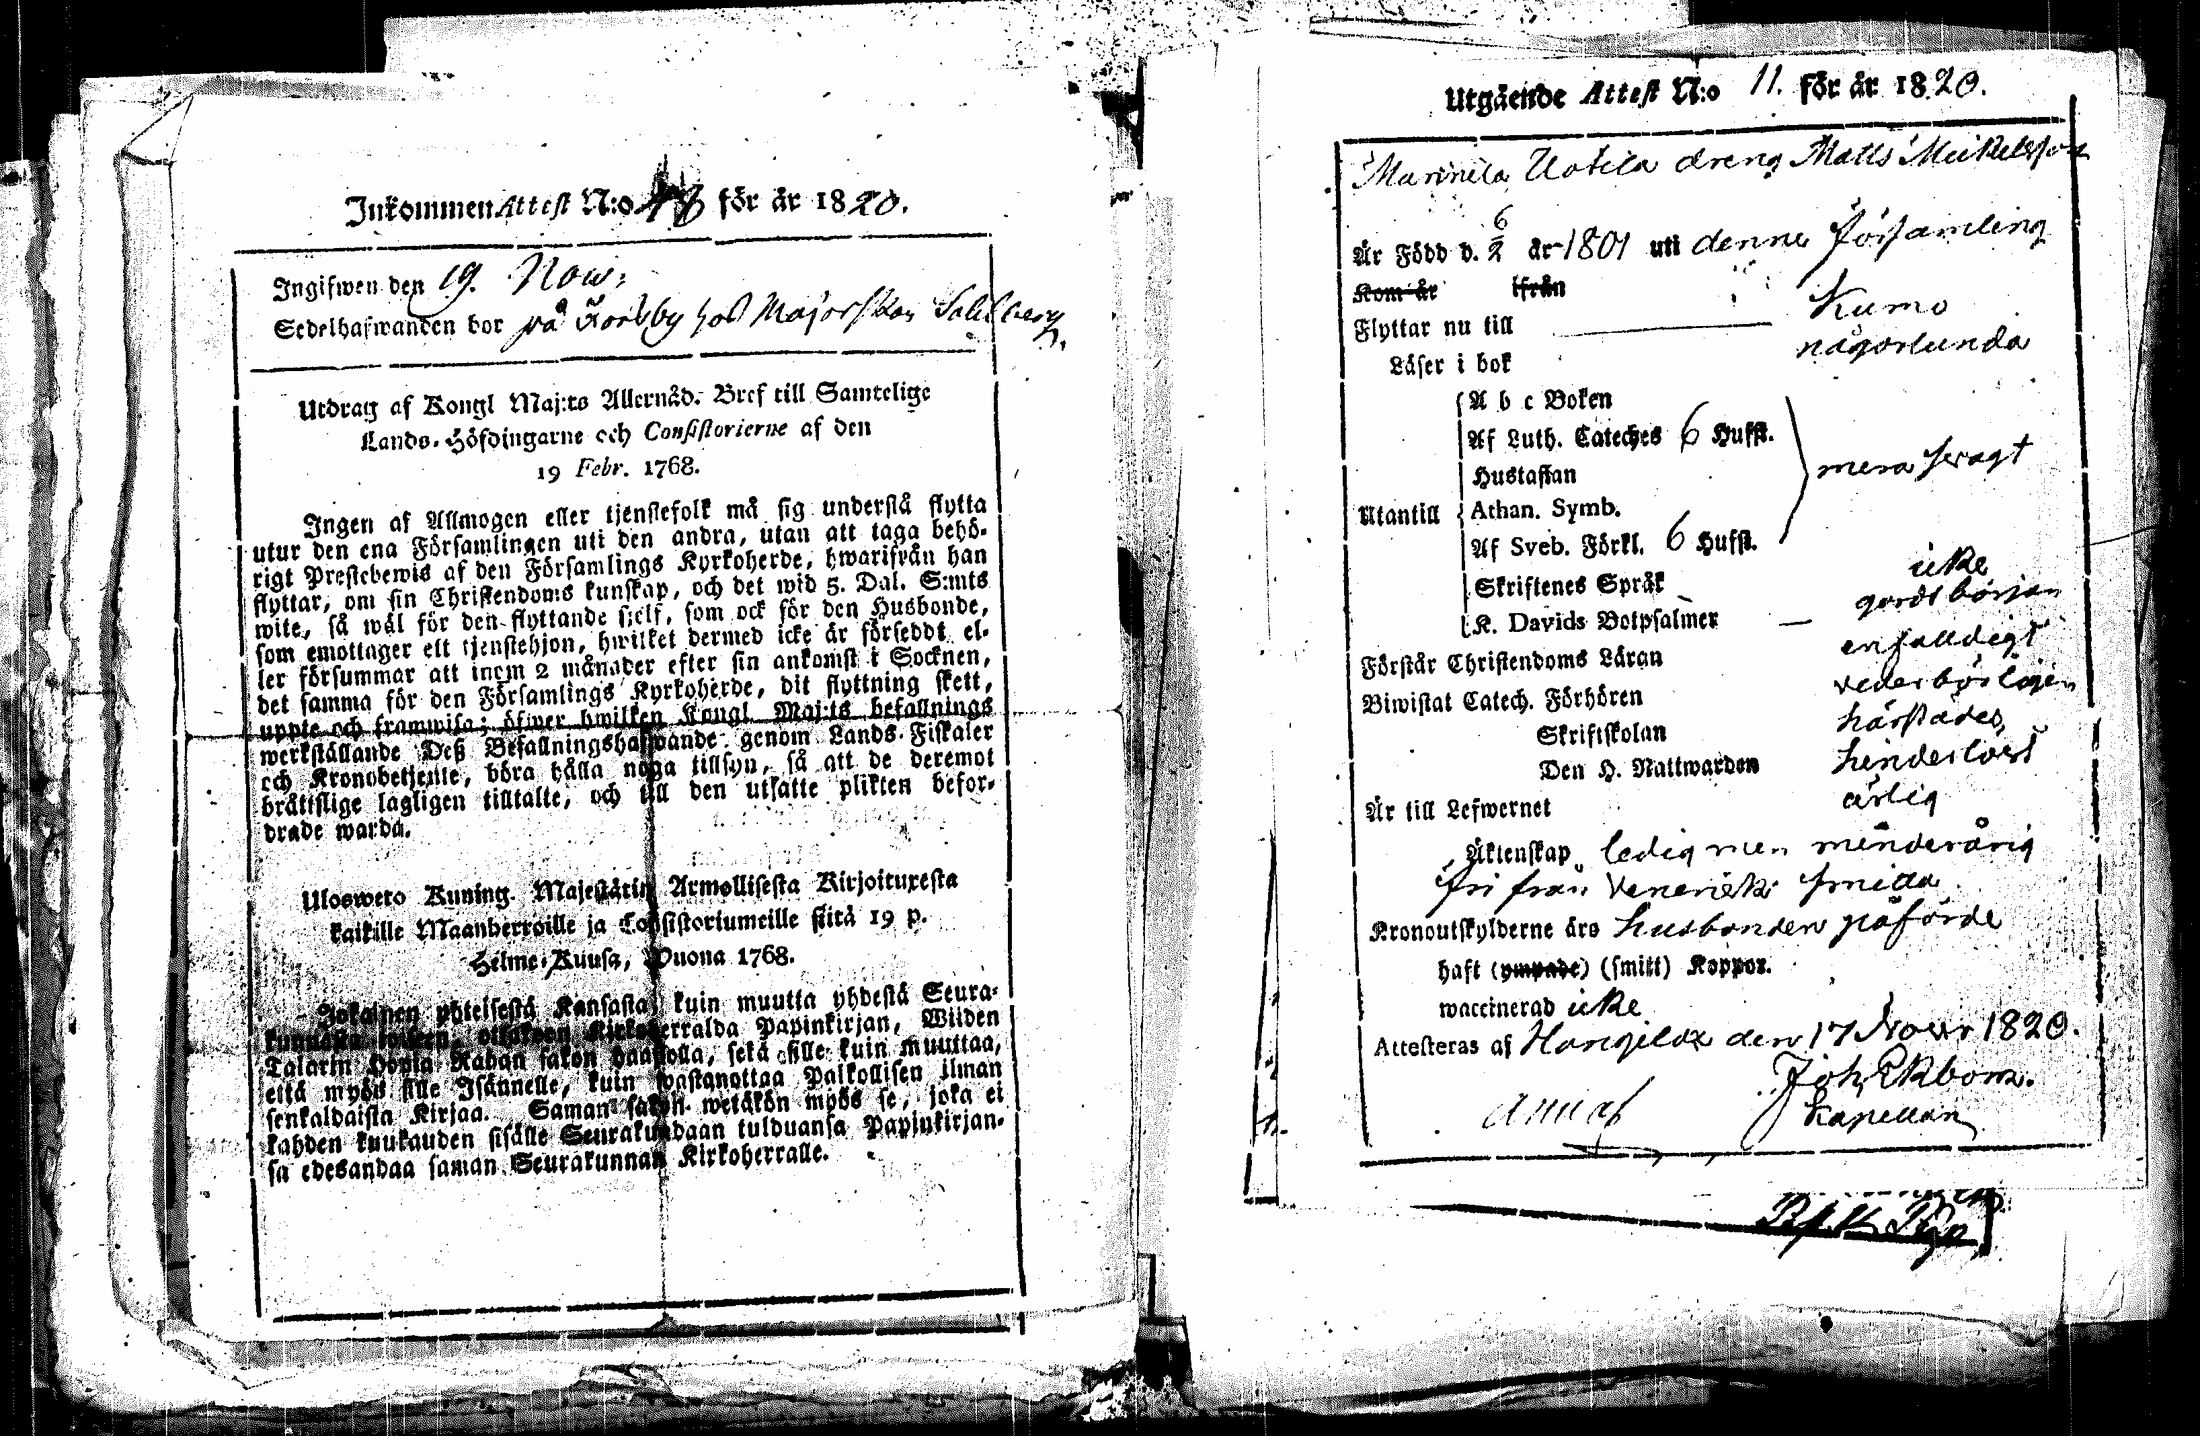 Inkommen Attest N:o 48 för år 1820.
Ingifwen den 19. Now:
Sedelhafwanden bor på hos Majorskan
Utdrag af Kongl Maj:ts Allernåd. Bref till Samtelige
Lands-Höfdingarne och Consistorierne af den
19 Febr. 1768.
Ingen af Allmogen eller tjenstefolk må sig understå flytta
utur den ena Församlingen uti den andra, utan att taga behö-
rigt Prestebewis af den Församlings Kyrkoherde, hwarifrån han
flyttar, om sin Christendoms kunskap, och det wid 5. Dal. S:mts
wite, så wäl för den flyttande sjelf, som ock för den Husbonde,
som emottager ett tjenstehjon, hwilket dermed icke är försedt, el-
ler försummar att inom 2 månader efter sin ankomst i Socknen,
det samma för den Församlings Kyrkoherde, dit flyttning skett,
uppte och framwisa; öfwer hwilken Kongl. Maj:ts befallnings
werkställande Deß Befallningshafwande genom Lands-Fiskaler
och Kronobetjente, böra hålla noga tillsyn, så att de deremot
bråttslige lagligen tilltalte, och till den utsatte plikten befor-
drade warda.
Ulosweto Kuning. Majestätin Armollisesta Kirjoituxesta
kaikille Maanherroille ja Consistoriumeille siitä 19 p.
Helme-Kuusa, Wuona 1768.
Jokainen yhteisestä Kansasta, kuin muutta yhdestä Seura-
kunnasta toiseen, ottakoon Kirkoherralda Papinkirjan, Wiiden
Talarin Hopia Rahan sakon haastolla, sekä sille kuin muuttaa,
että myös sille Isännelle, kuin wastanottaa Palkollisen ilman
senkaldaista Kirjaa. Saman sakon wetäkön myös se, joka ei
kahden kuukauden sisälle Seurakundaan tulduansa Papinkirjan-
sa edesandaa saman Seurakunnan Kirkoherralle.
Utgående Attest N:o 11. för år 1820.
Marinila Uotila dreng Matts Mickelsson
Är Född d. 6/2 år 1801 uti denne Församling
Kom år ifrån
Flyttar nu till Kumo
Läser i bok någorlunda
A b c Boken
Af Luth. Cateches 6 Hufst.
Hustaflan
Utantill Athan. Symb. mera swagt
Af Sveb. Förkl. 6 Hufst.
Skriftenes Språk icke
K. Davids Botpsalmer — gordt början
Förstår Christendoms Läran enfalldigt
Biwistat Catech. Förhören vederbörligen
Skriftskolan härstädes
Den H. Nattwarden hinderlöst
Är till Lefwernet ärlig
Äktenskap ledig men minderårig
fri från Venerisk smitta
Kronoutskylderne äro husbonden påförde
haft (ympade) (smitt) Koppor.
waccinerad icke
Attesteras af Hongilax den 17 Novbr 1820.
Joh. Ekbom.
Kapellan